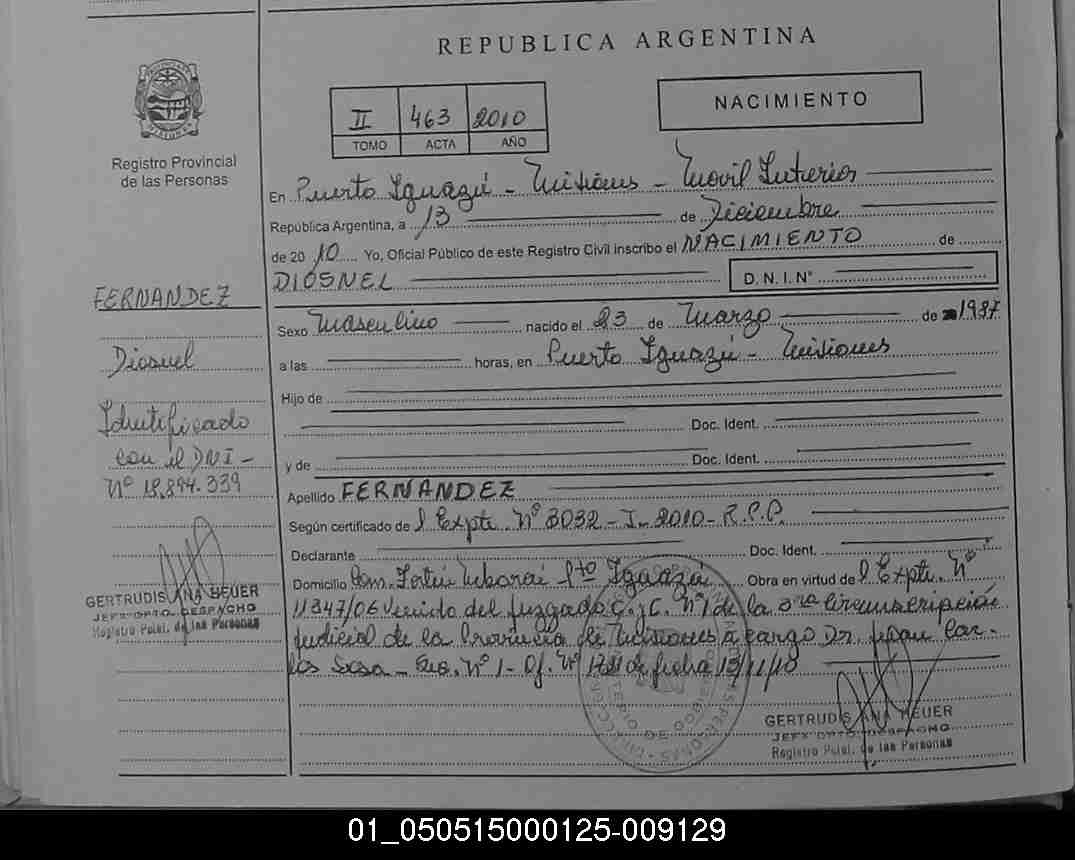 REPUBLICA ARGENTINA
PROVINCIA DE MISIONES
Registro Provincial
de las Personas
II 463 2010
TOMO ACTA AÑO
NACIMIENTO
En Puerto Iguazú - Misiones - Movil Interior
República Argentina, a 13 de Diciembre
de 20 10 Yo, Oficial Público de este Registro Civil inscribo el NACIMIENTO de
DIOSNEL D.N.I.N°
Sexo Masculino nacido el 23 de Marzo de 1987
a las horas, en Puerto Iguazú - Misiones
Hijo de
Doc. Ident.
y de Doc. Ident.
Apellido FERNANDEZ
Según certificado de Expte. N° 3032 - I - 2010 - R.P.P.
Declarante Doc. Ident.
Domicilio Com. Fortín Mbororé Pto Iguazú Obra en virtud de Expte. N°
11347/06 Venido del Juzgado C. y C. N° 1 de la 3ra Circunscripción
Judicial de la Provincia de Misiones a cargo Dr. Juan Car-
los Sosa - Sec. N° 1 - Of. N° de fecha 12/11/10
FERNANDEZ
Diosnel
Identificado
con el DNI -
N° 18.894.339
GERTRUDIS ANA HEUER
JEFA DPTO. DESPACHO
Registro Pcial. de las Personas
GERTRUDIS ANA HEUER
JEFA DPTO. DESPACHO
Registro Pcial. de las Personas
01_050515000125-009129